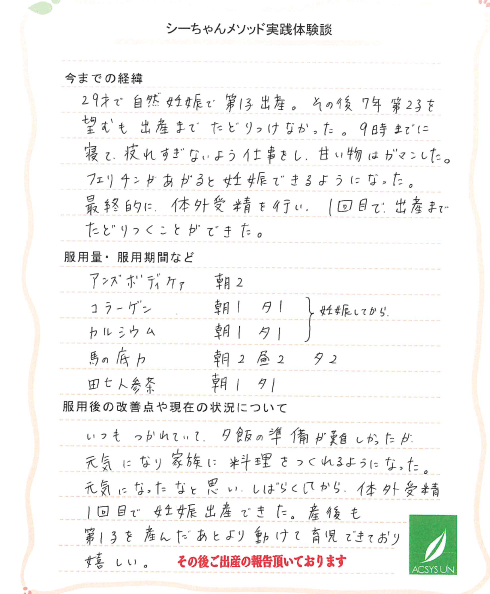 シーちゃんメソッド実践体験談
今までの経緯
29才で自然妊娠で第1子出産。その後7年第2子を
望むも出産までたどりつけなかった。9時までに
寝て、疲れすぎないよう仕事をし、甘い物はガマンした。
フェリチンがあがると妊娠できるようになった。
最終的に、体外受精を行い、1回目で、出産まで
たどりつくことができた。
服用量・服用期間など
アンズボディケァ 朝2
コラーゲン 朝1 夕1 妊娠してから
カルシウム 朝1 夕1
馬の底力 朝2 昼2 夕2
田七人参茶 朝1 夕1
服用後の改善点や現在の状況について
いつもつかれていて、夕飯の準備が難しかったが
元気になり家族に料理をつくれるようになった。
元気になったなと思い、しばらくしてから、体外受精
1回目で妊娠出産できた。産後も
第1子を産んだあとより動けて育児できており
嬉しい。
その後ご出産の報告頂いております
ACSYS UN